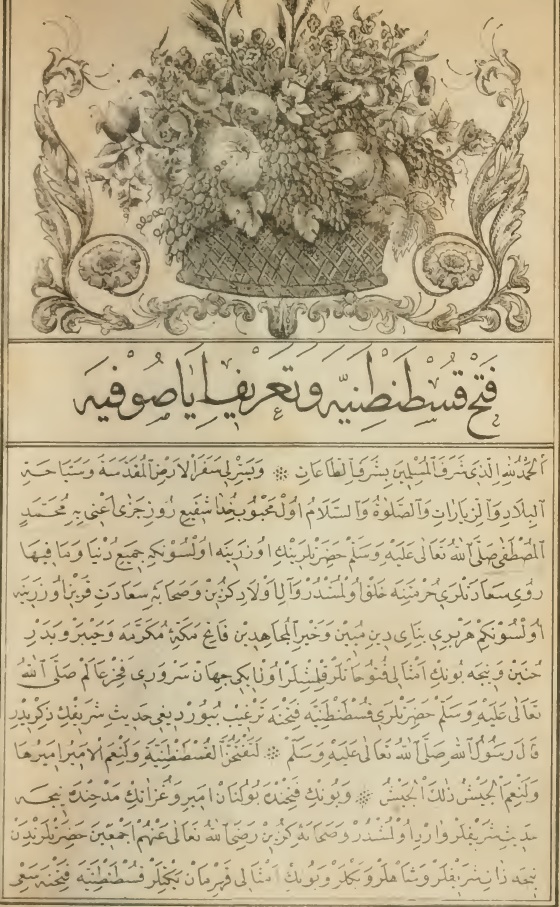 فتح قسطنطنیه و تعریف ایاصوفیه
الحمد لله الذی شرف المسلمین بشرف الطاعات ❊ و یسر لی سفر الارض المقدسة و سیاحة
البلاد و الزیارات و الصلوة و السلام اول محبوب خدا شفیع روز جزا اعنی به محمد
المصطفی صلی الله تعالی علیه و سلم حضرتلرینك اوزرینه اولسونکه جمیع دنیا و ما فیها
روی سعادتلری حرمتنه خلق اولمشدر و آل و اولاد کزین و صحابهٔ سعادت قرین اوزرینه
اولسونکه هر بری بنای دین مبین و خیر المجاهدین فاتح مکهٔ مکرمه و خیبر و بدر
حنین و نیجه بونك امثالی فتوحاتلر قلمشلر اول ایکی جهان سروری فخر عالم صلی الله
تعالی علیه و سلم حضرتلری قسطنطنیه فتحنه ترغیب بیوردیغی حدیث شریفك ذکریدر
قال رسول الله صلی الله تعالی علیه و سلم ❊ لتفتحن القسطنطنیة و لنعم الامیر امیرها
و لنعم الجیش ذلك الجیش ❊ و بونك فتحنده بولنان امیر و غزانك مدحنده نیجه
حدیث شریفلر وارد اولمشدر و صحابهٔ کزین رضی الله تعالی عنهم اجمعین حضرتلریندن
نیجه ذات شریفلر و شاهلر و بکلر و بونك امثالی قهرمان بکلر قسطنطنیه فتحنه سعی